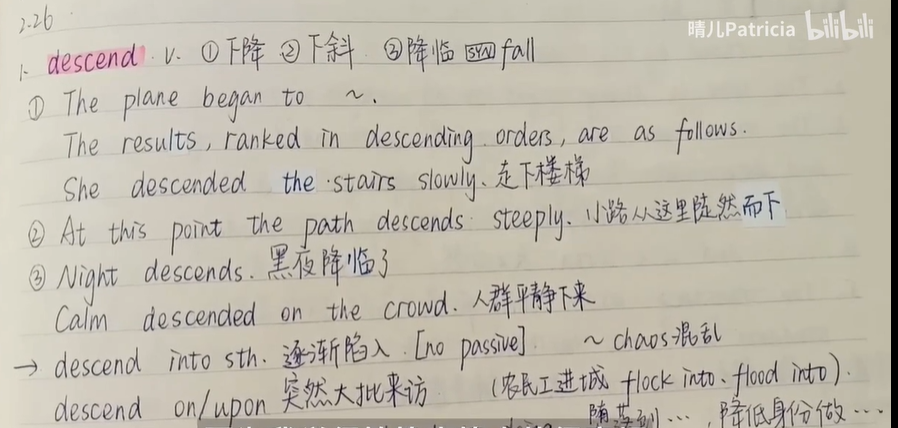 2.26
晴儿Patricia bilibili
1. descend v. ①下降 ②下斜 ③降临 SYN fall
① The plane began to ~.
The results, ranked in descending orders, are as follows.
She descended the stairs slowly. 走下楼梯
② At this point the path descends steeply. 小路从这里陡然而下
③ Night descends. 黑夜降临了
Calm descended on the crowd. 人群平静下来
→ descend into sth. 逐渐陷入 [no passive] ~ chaos混乱
descend on/upon 突然大批来访 (农民工进城 flock into、flood into).
随落到…，降低身份做…